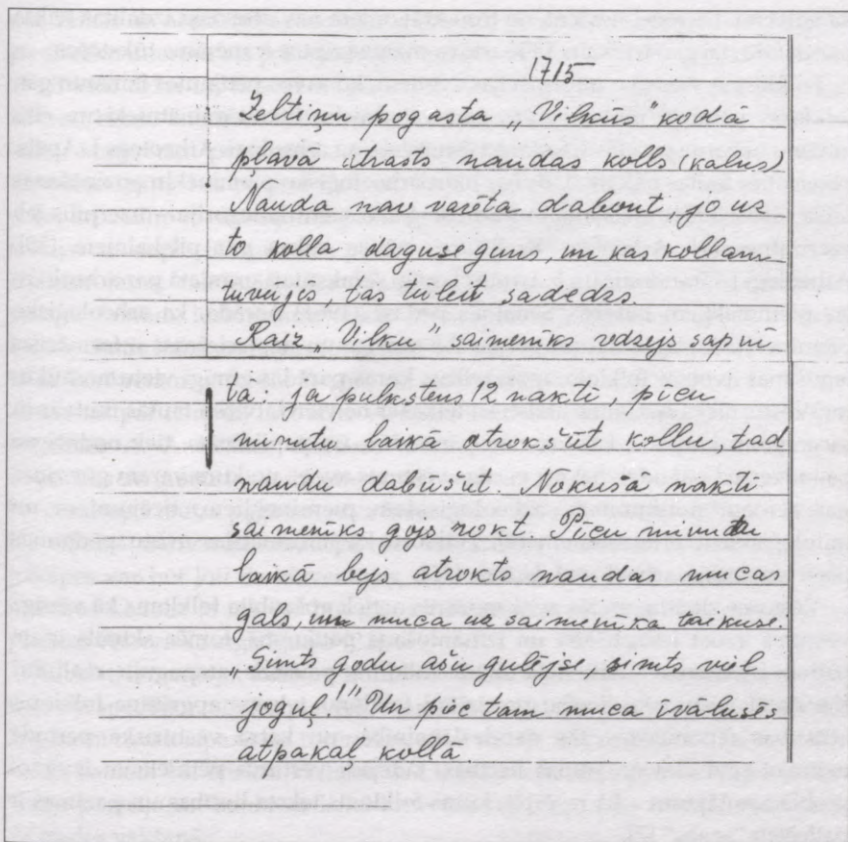 1715
Zeltiņu pogasta „Vilkūs" kodā
plavā atrasts naudas kolls (kalns)
Nauda nav varēta dabout, jo uz
to kolla daguse guns, un kas kollam
tuvojīs, tas tūleit sadedzs.
Raiz „Vilku" saimenīks redzejs sapnī
tā: ja pulkstens 12 naktī, pīcu
minutu laikā atrokšūt kollu, tad
naudu dabūšūt. Nokušā naktī
saimenīks gojs rokt. Pīcu minutu
laikā bejs atrokts naudas mucas
gals, un muca uz saimenīka taikuse.
„Simts godu ašu gulējse, simts vēl
joguļ!" Un pēc tam muca īvālusēs
atpakaļ kollā.